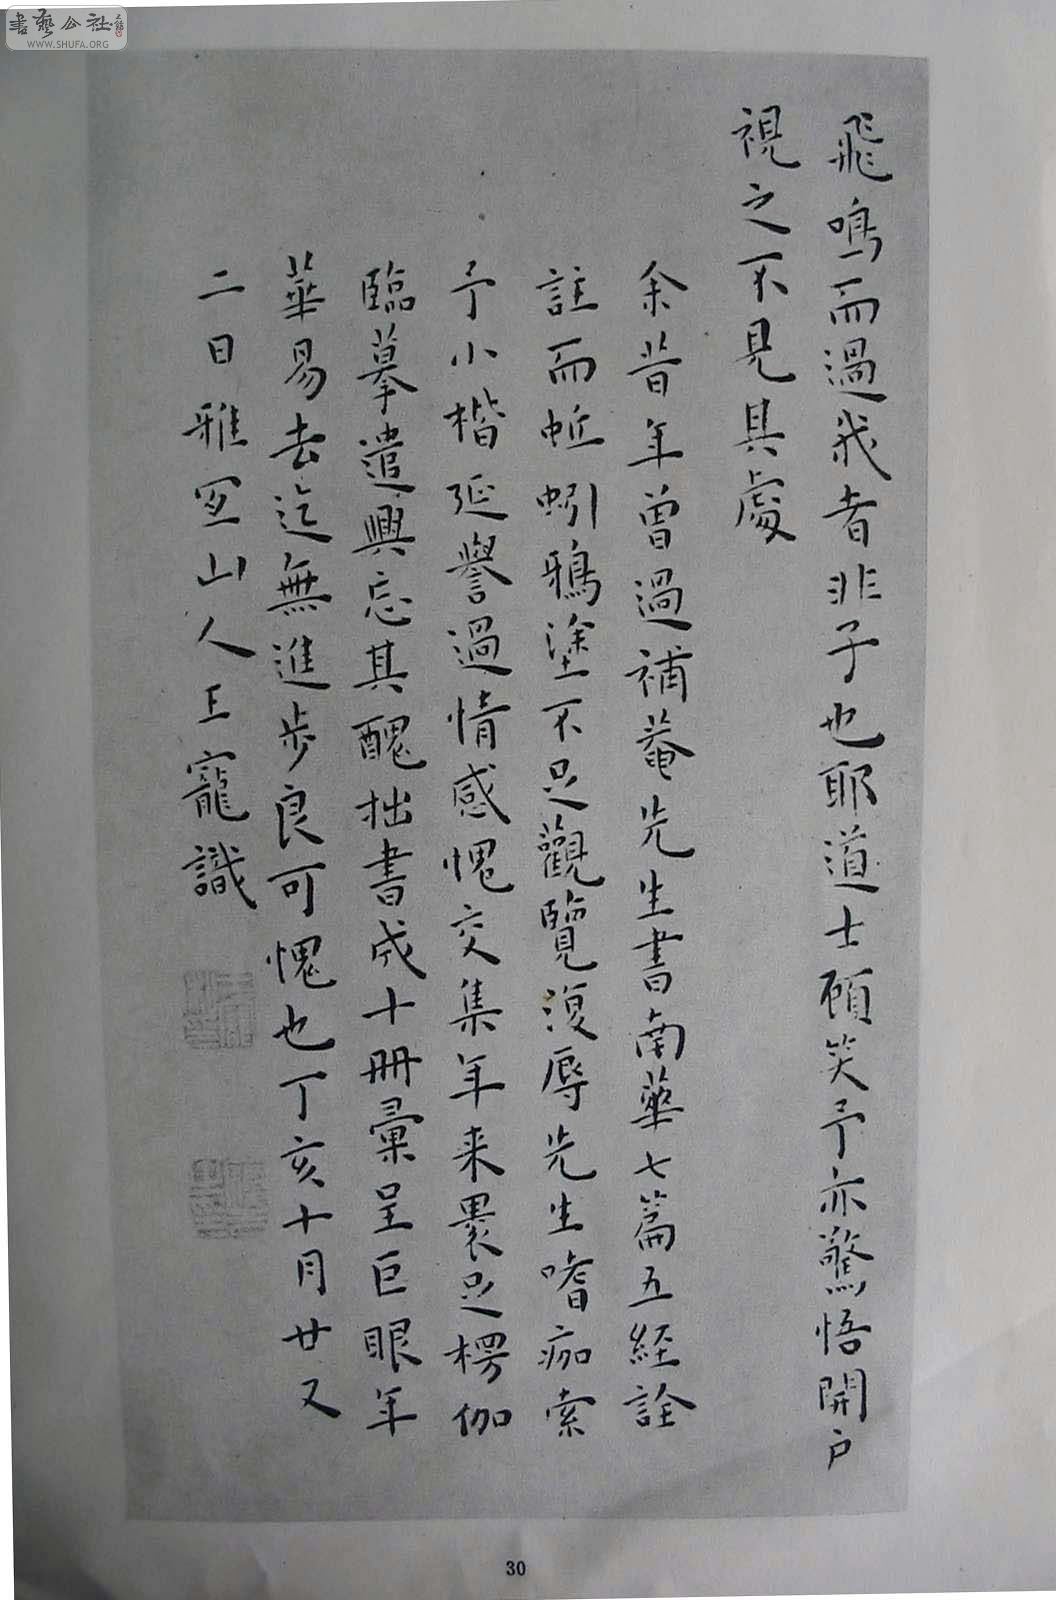 書藝公社
WWW.SHUFA.ORG
飛鳴而過我者非子也耶道士顧笑予亦驚悟開戶
視之不見其處
余昔年曾過補菴先生書南華七篇五經詮
註而蚯蚓鴉塗不足觀覽復辱先生嗜痂索
予小楷延譽過情感愧交集年來累足楞伽
臨摹遣興忘其醜拙書成十冊彙呈巨眼年
華易去迄無進步良可愧也丁亥十月廿又
二日雅宜山人王寵識
30